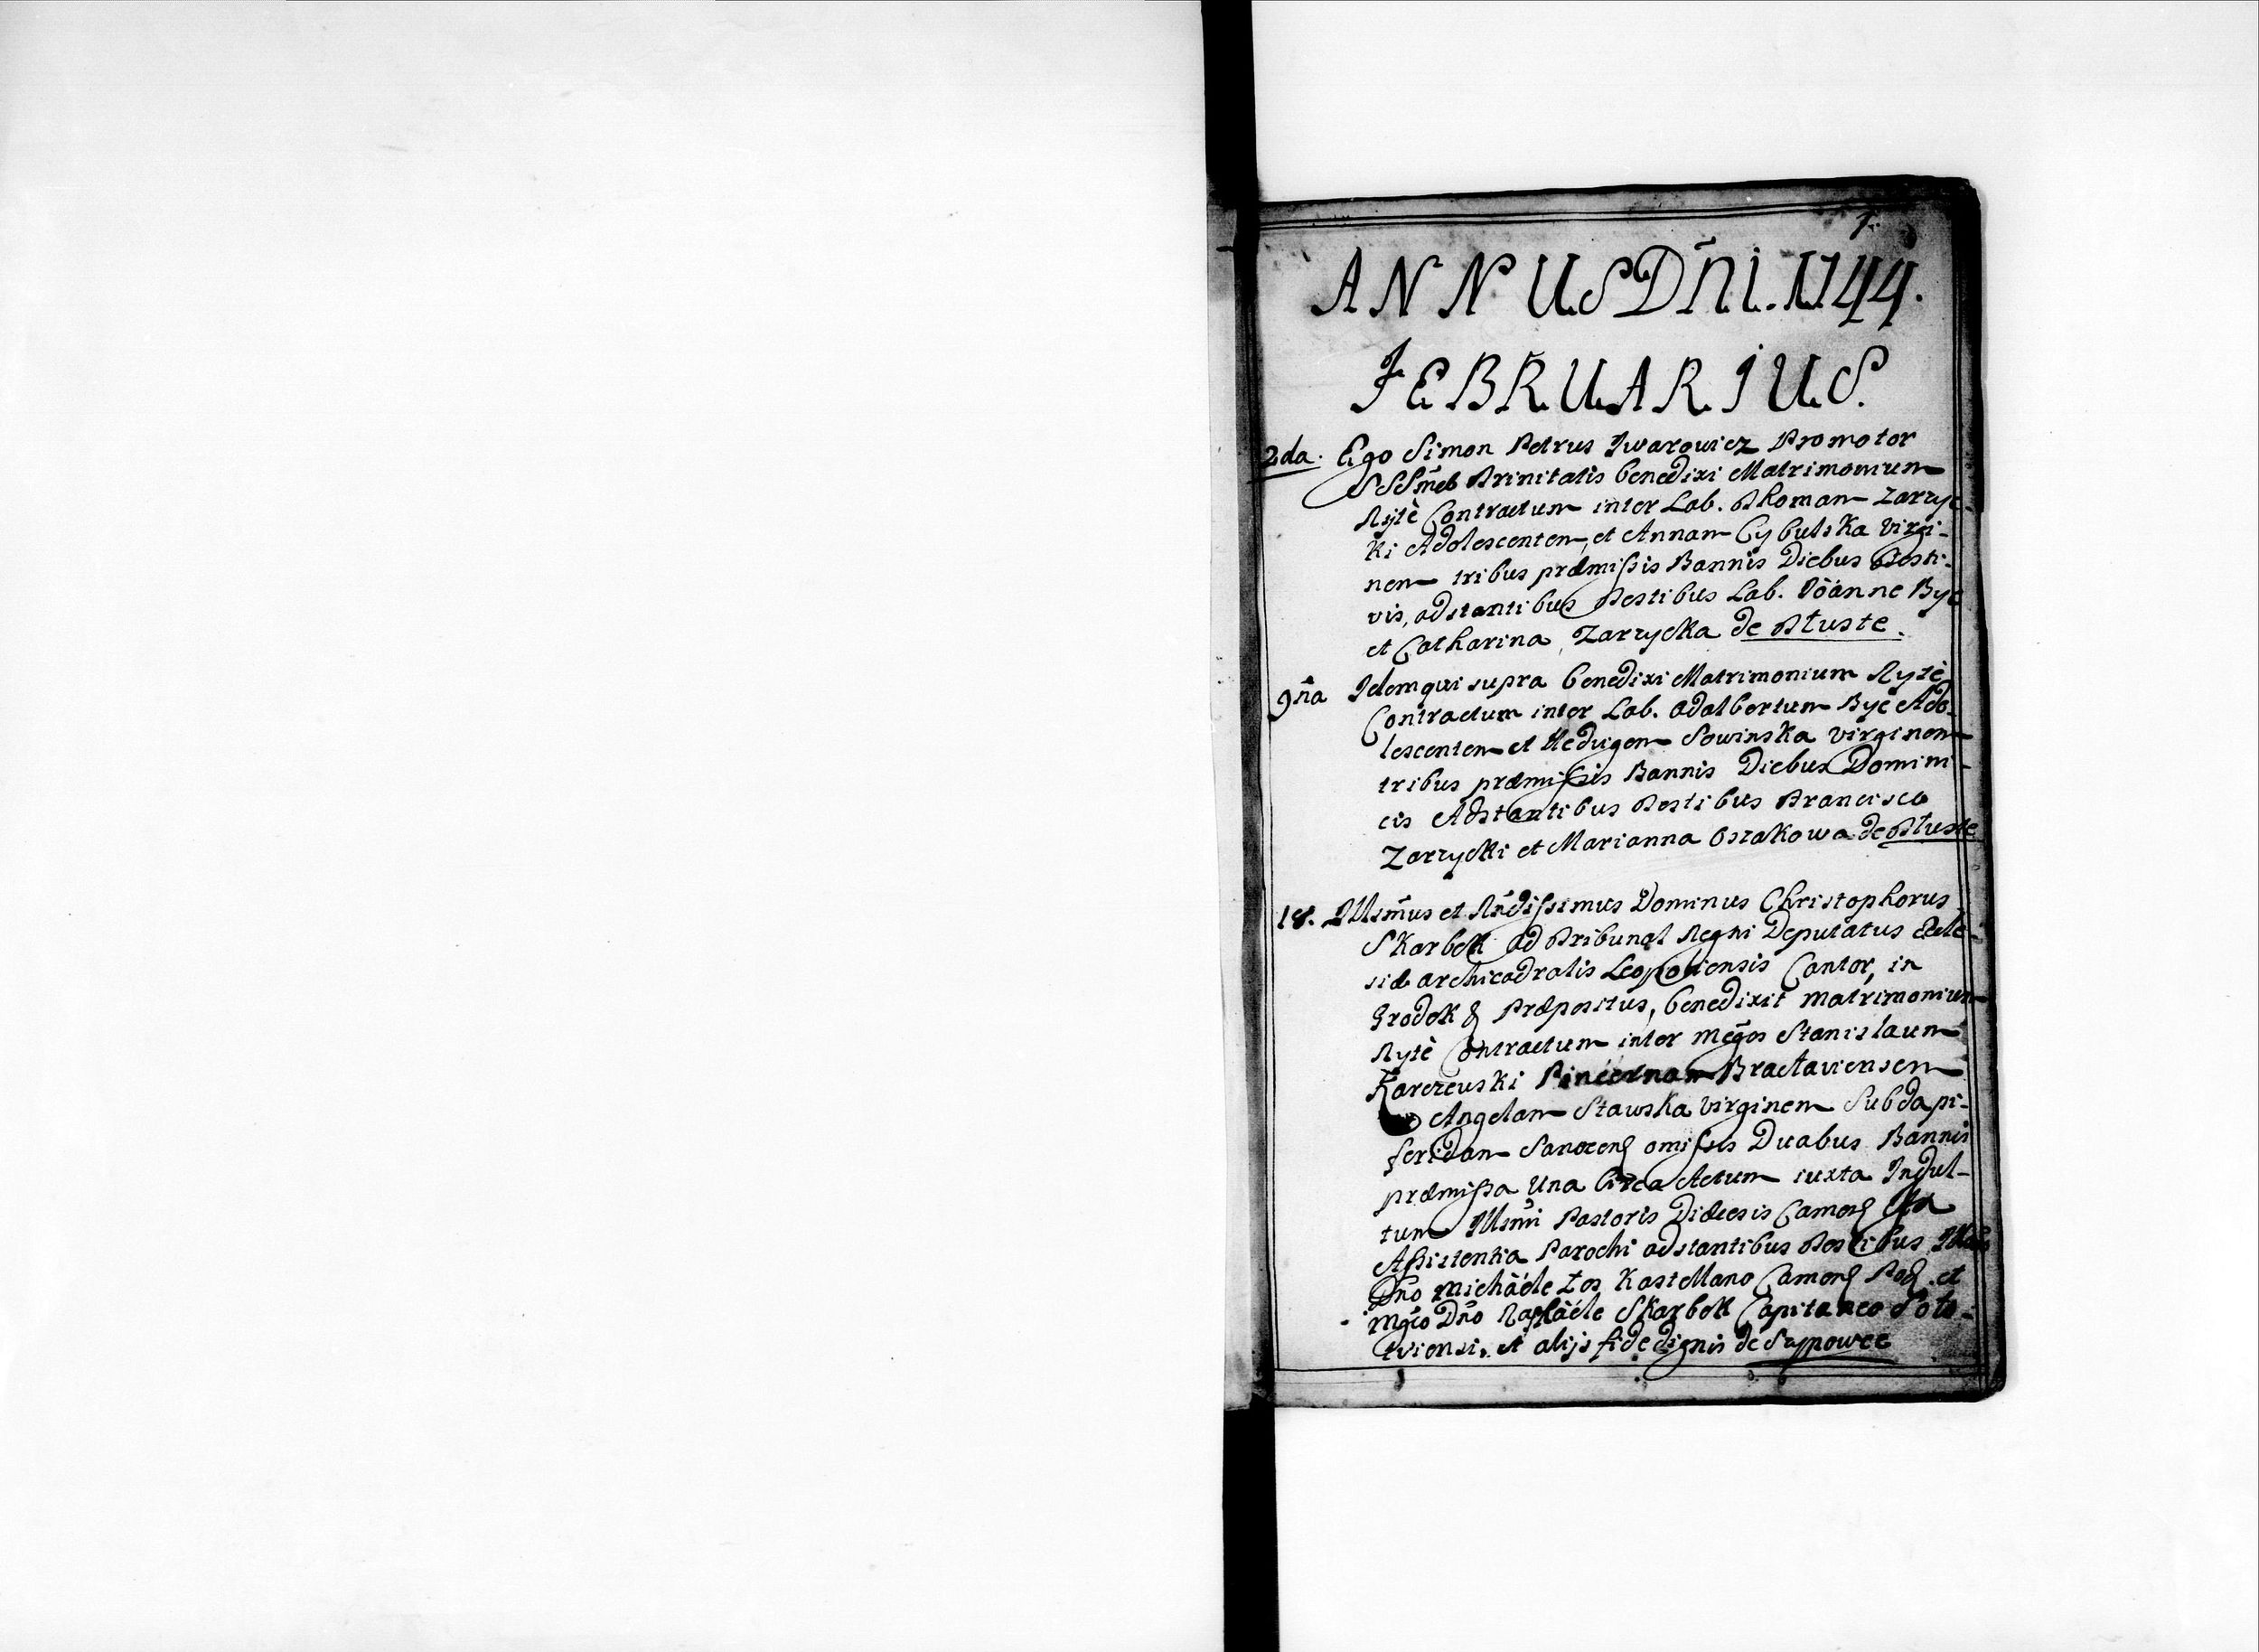 1.
ANNUS DÑI. 1744.
FEBRUARIUS.
2da. Ego Simon Petrus Iwarowicz Promotor
SSSmæ Trinitatis benedixi Matrimonium
Rytè Contractum inter Lab. Thoman Zarzyc-
ki Adolescentem, et Annam Cybulska virgi-
nem tribus præmissis Bannis Diebus Festi-
vis, adstantibus Testibus Lab. Ioanne Byc
et Catharina Zarzycka de Tłuste.
9na Idem qui supra benedixi Matrimonium Rytè
Contractum inter Lab. Adalbertum Byc Ado-
lescentem et Hedvigem Sowinska virginem
tribus præmissis Bannis Diebus Domini-
cis Adstantibus Testibus Francisco
Zarzycki et Marianna Oszakowa de Tłuste
18. Illsmus et Rndissimus Dominus Christophorus
Skarbek ad Tribunal Regni Deputatus Eccle-
siæ archicadralis Leopoliensis Cantor, in
Grodek & Præpositus, benedixit matrimonium
Rytè Contractum inter Mgcos Stanislaum
Karczewski Pincernam Bractaviensem
Angelam Stawska virginem Subdapi-
feridam Sanocen omissis Duabus Bannis
præmissa Una Circa Actum iuxta Indul-
tum Illsmi Pastoris Diæcesis Camen
Assistentia Parochi adstantibus Testibus
Dno Michaele Łos Kastellano Camen Pod et
Mgco Dno Raphaele Skarbek Capitaneo Soto-
tviensi, et alijs fide dignis de Sappowce